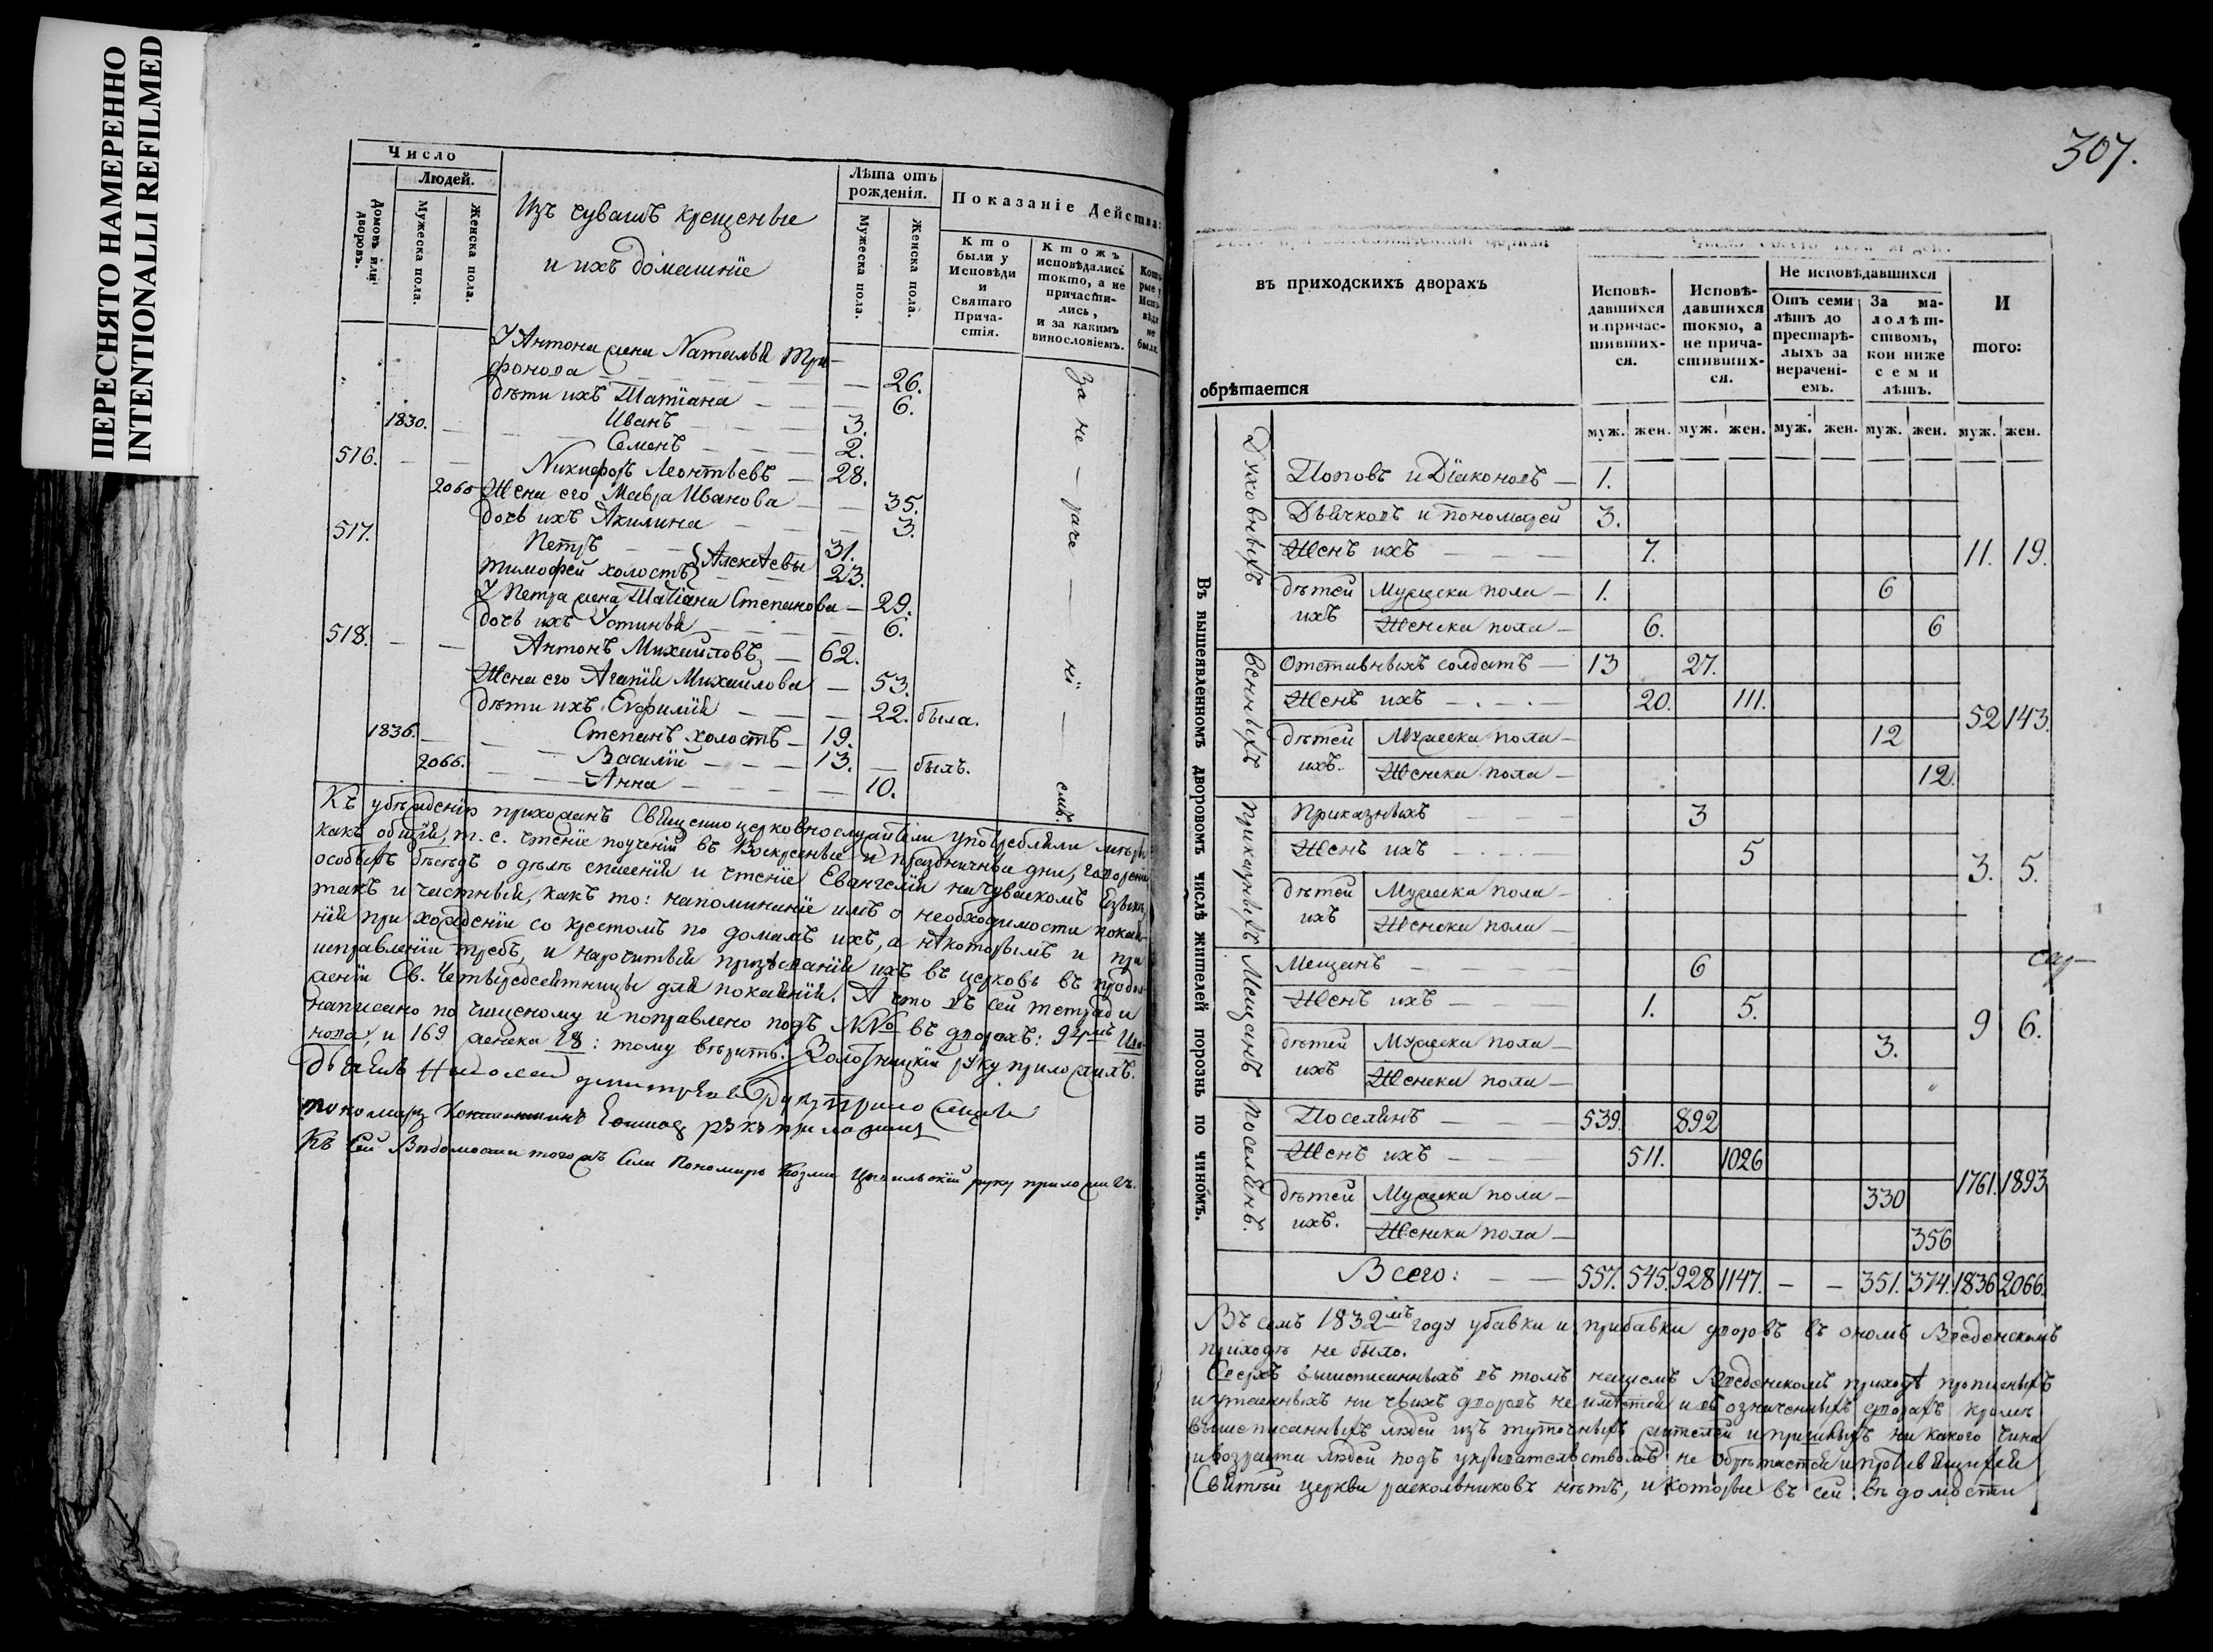 ПЕРЕСНЯТО НАМЕРЕННО
INTENTIONALLI REFILMED
Число
Домовъ или дворовъ.
Людей.
Мужеска пола.
Женска пола.
Изъ чувашъ крещеные
и ихъ домашніе
Лѣта отъ рожденія.
Мужеска пола.
Женска пола.
Показаніе Действа:
Кто были у Исповѣди и Святаго Причастія.
Ктожъ исповѣдались токмо, а не причастились, и за какимъ винословіемъ.
У Антона жена Наталья Три-
фонова — 26.
дѣти ихъ Татіана — 6.
1830. Иванъ — 3.
Семенъ — 2.
516. Никифоръ Леонтьевъ — 28.
2065 Жена его Мавра Иванова — 35.
дочь ихъ Акилина — 3.
517. Петръ — 31.
Тимофей холостъ } Алексѣевы 23.
У Петра жена Татіана Степанова — 29.
дочь ихъ Устинья — 6.
518. Антонъ Михайловъ — 62.
Жена его Агапія Михайлова — 53.
дѣти ихъ Евфимія — 22. была.
1836. Степанъ холостъ — 19.
Василій — 13. былъ.
2066. Анна — 10.
За не — раче — ні — емъ.
Къ убѣжденію прихожанъ Священноцерковнослужители употребляли мѣры
какъ общія, т. е. чтеніе поученій въ Воскресные и праздничные дни, говореніе
особыхъ бесѣдъ о дѣлѣ спасенія и чтеніе Евангелія на чувашскомъ Езыкѣ,
такъ и частныя, какъ то: напоминаніе имъ о необходимости покая-
нія при хожденіи со крестомъ по домамъ ихъ, а нѣкоторымъ и при
исправленіи требъ, и нарочитыя призыванія ихъ въ церковь въ продол-
женіи Св. Четыредесятницы для покаянія. А что въ сей тетради
написано по чищеному и поправлено подъ №№ въ дворахъ: 94мъ
и 169 женска 28: тому вѣрить. Золотницкій руку приложилъ.
руку приложилъ
пономарь
Къ сей Вѣдомости тогожъ Села Пономарь Козма руку приложилъ.
307.
въ приходскихъ дворахъ
обрѣтается
Исповѣдавшихся и причастившихся.
Исповѣдавшихся токмо, а не причастившихся.
Не исповѣдавшихся
Отъ семи лѣтъ до престарѣлыхъ за нераченіемъ.
За малолѣтствомъ, кои ниже семи лѣтъ.
И того:
муж. жен. муж. жен. муж. жен. муж. жен. муж. жен.
Въ вышеявленномъ дворовомъ числѣ жителей порознь по чиномъ.
Духовныхъ
Поповъ и Діаконовъ — 1.
Дьячковъ и пономарей 3.
Женъ ихъ — 7. 11. 19.
дѣтей ихъ Мужеска пола — 1. 6
Женска пола — 6. 6
Военныхъ
Отставныхъ солдатъ — 13 27.
Женъ ихъ — 20. 111. 52 143.
дѣтей ихъ. Мужеска пола — 12
Женска пола — 12.
Приказныхъ
Приказныхъ 3
Женъ ихъ — 5 3. 5.
дѣтей ихъ Мужеска пола —
Женска пола —
Мещанъ
Мещанъ — 6
Женъ ихъ — 1. 5. 9 6.
дѣтей ихъ Мужеска пола — 3.
Женска пола —
Поселянъ.
Поселянъ — 539. 892
Женъ ихъ — 511. 1026 1761. 1893
дѣтей ихъ. Мужеска пола — 330
Женска пола — 356
Всего: — 557. 545. 928 1147. — — 351. 374. 1836 2066.
Въ семъ 1832мъ году убавки и прибавки дворовъ въ ономъ Введенскомъ
приходѣ не было.
Сверхъ вышеписанныхъ въ томъ нашемъ Введенскомъ приходѣ прописныхъ
и утаенныхъ ни чьихъ дворовъ не имѣется и въ означенныхъ дворахъ кромѣ
вышеписанныхъ людей изъ туточныхъ жителей и пришлыхъ ни какого чина
и возраста людей подъ укрывательствомъ не обрѣтается и противящихся
Святѣй церкви раскольниковъ нѣтъ, и которые въ сей вѣдомости